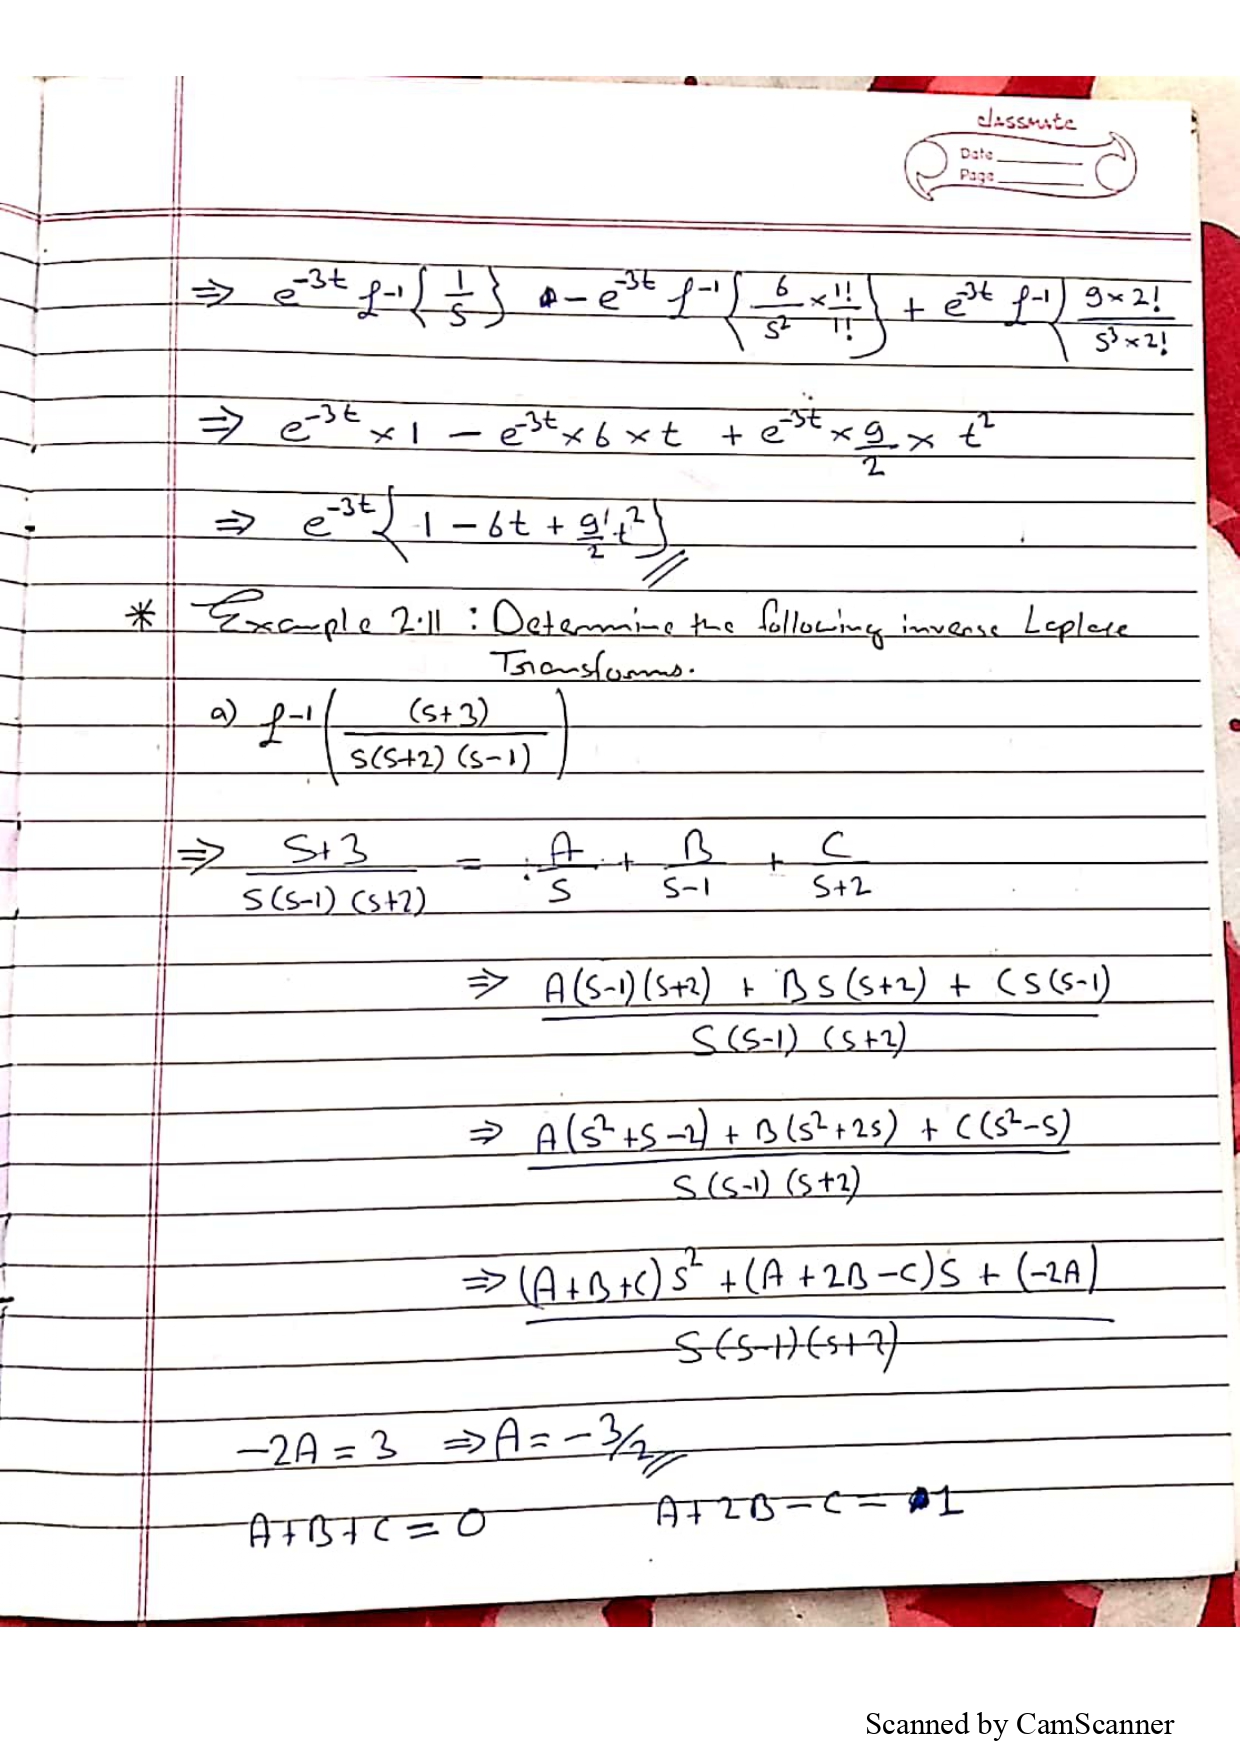 classmate
Date
Page
⇒ e^-3t £^-1{1/s} - e^-3t £^-1{6/s² × 1!/1!} + e^-3t £^-1{9×2!/s³×2!
⇒ e^-3t × 1 - e^-3t × 6 × t + e^-3t × 9/2 × t²
⇒ e^-3t{1 - 6t + 9/2 t²}
* Example 2.11 : Determine the following inverse Laplace
Transforms.
a) £^-1((s+3)/s(s+2)(s-1))
⇒ s+3/s(s-1)(s+2) = A/s + B/s-1 + C/s+2
⇒ A(s-1)(s+2) + Bs(s+2) + Cs(s-1)/s(s-1)(s+2)
⇒ A(s²+s-2) + B(s²+2s) + C(s²-s)/s(s-1)(s+2)
⇒ (A+B+C)s² + (A+2B-C)s + (-2A)/s(s-1)(s+2)
-2A = 3 ⇒ A = -3/2
A+B+C = 0 A+2B-C = 1
Scanned by CamScanner